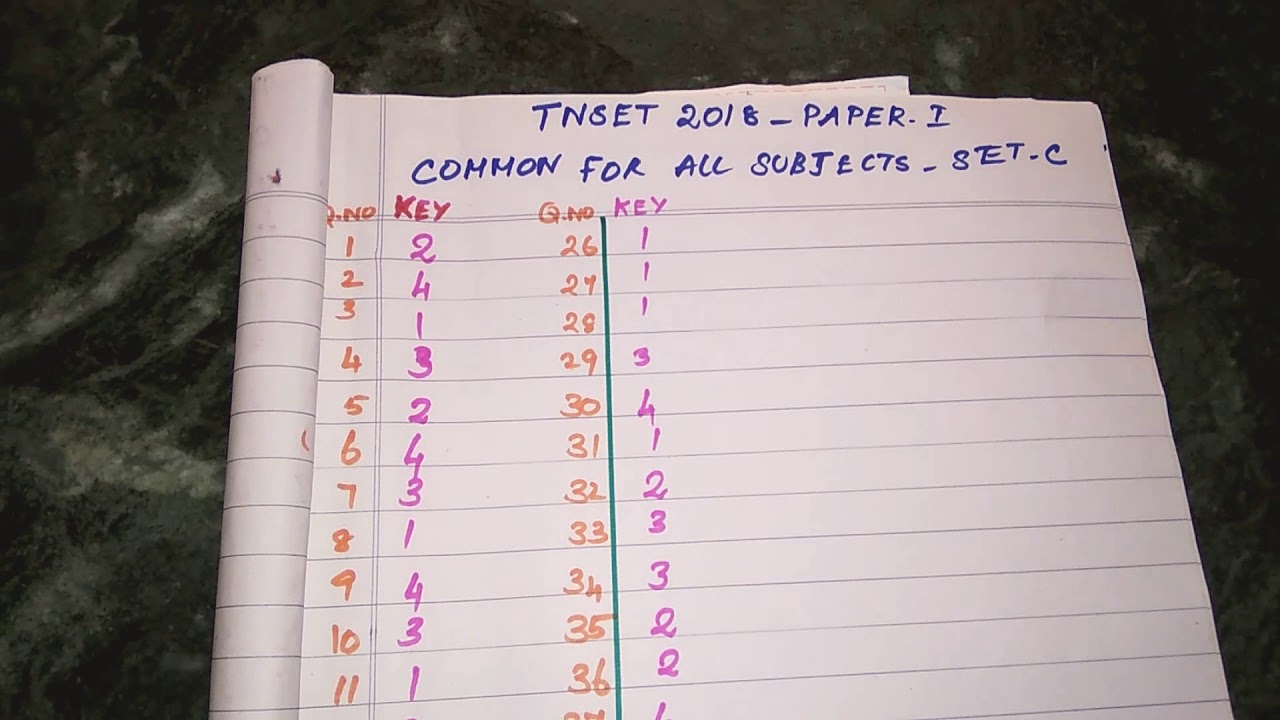 TNSET 2018 - PAPER - I
COMMON FOR ALL SUBJECTS - SET - C
Q.NO KEY Q.NO KEY
1 2 26 1
2 4 27 1
3 1 28 1
4 3 29 3
5 2 30 4
6 4 31 1
7 3 32 2
8 1 33 3
9 4 34 3
10 3 35 2
11 1 36 2